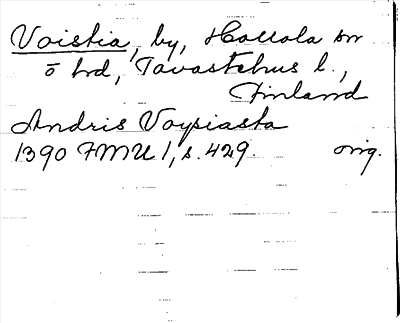 Voistia, by, Hollola sn
ö hd, Tavastehus l.,
Finland
Andris Voypiasta
1390 FMU 1, s. 429. orig.